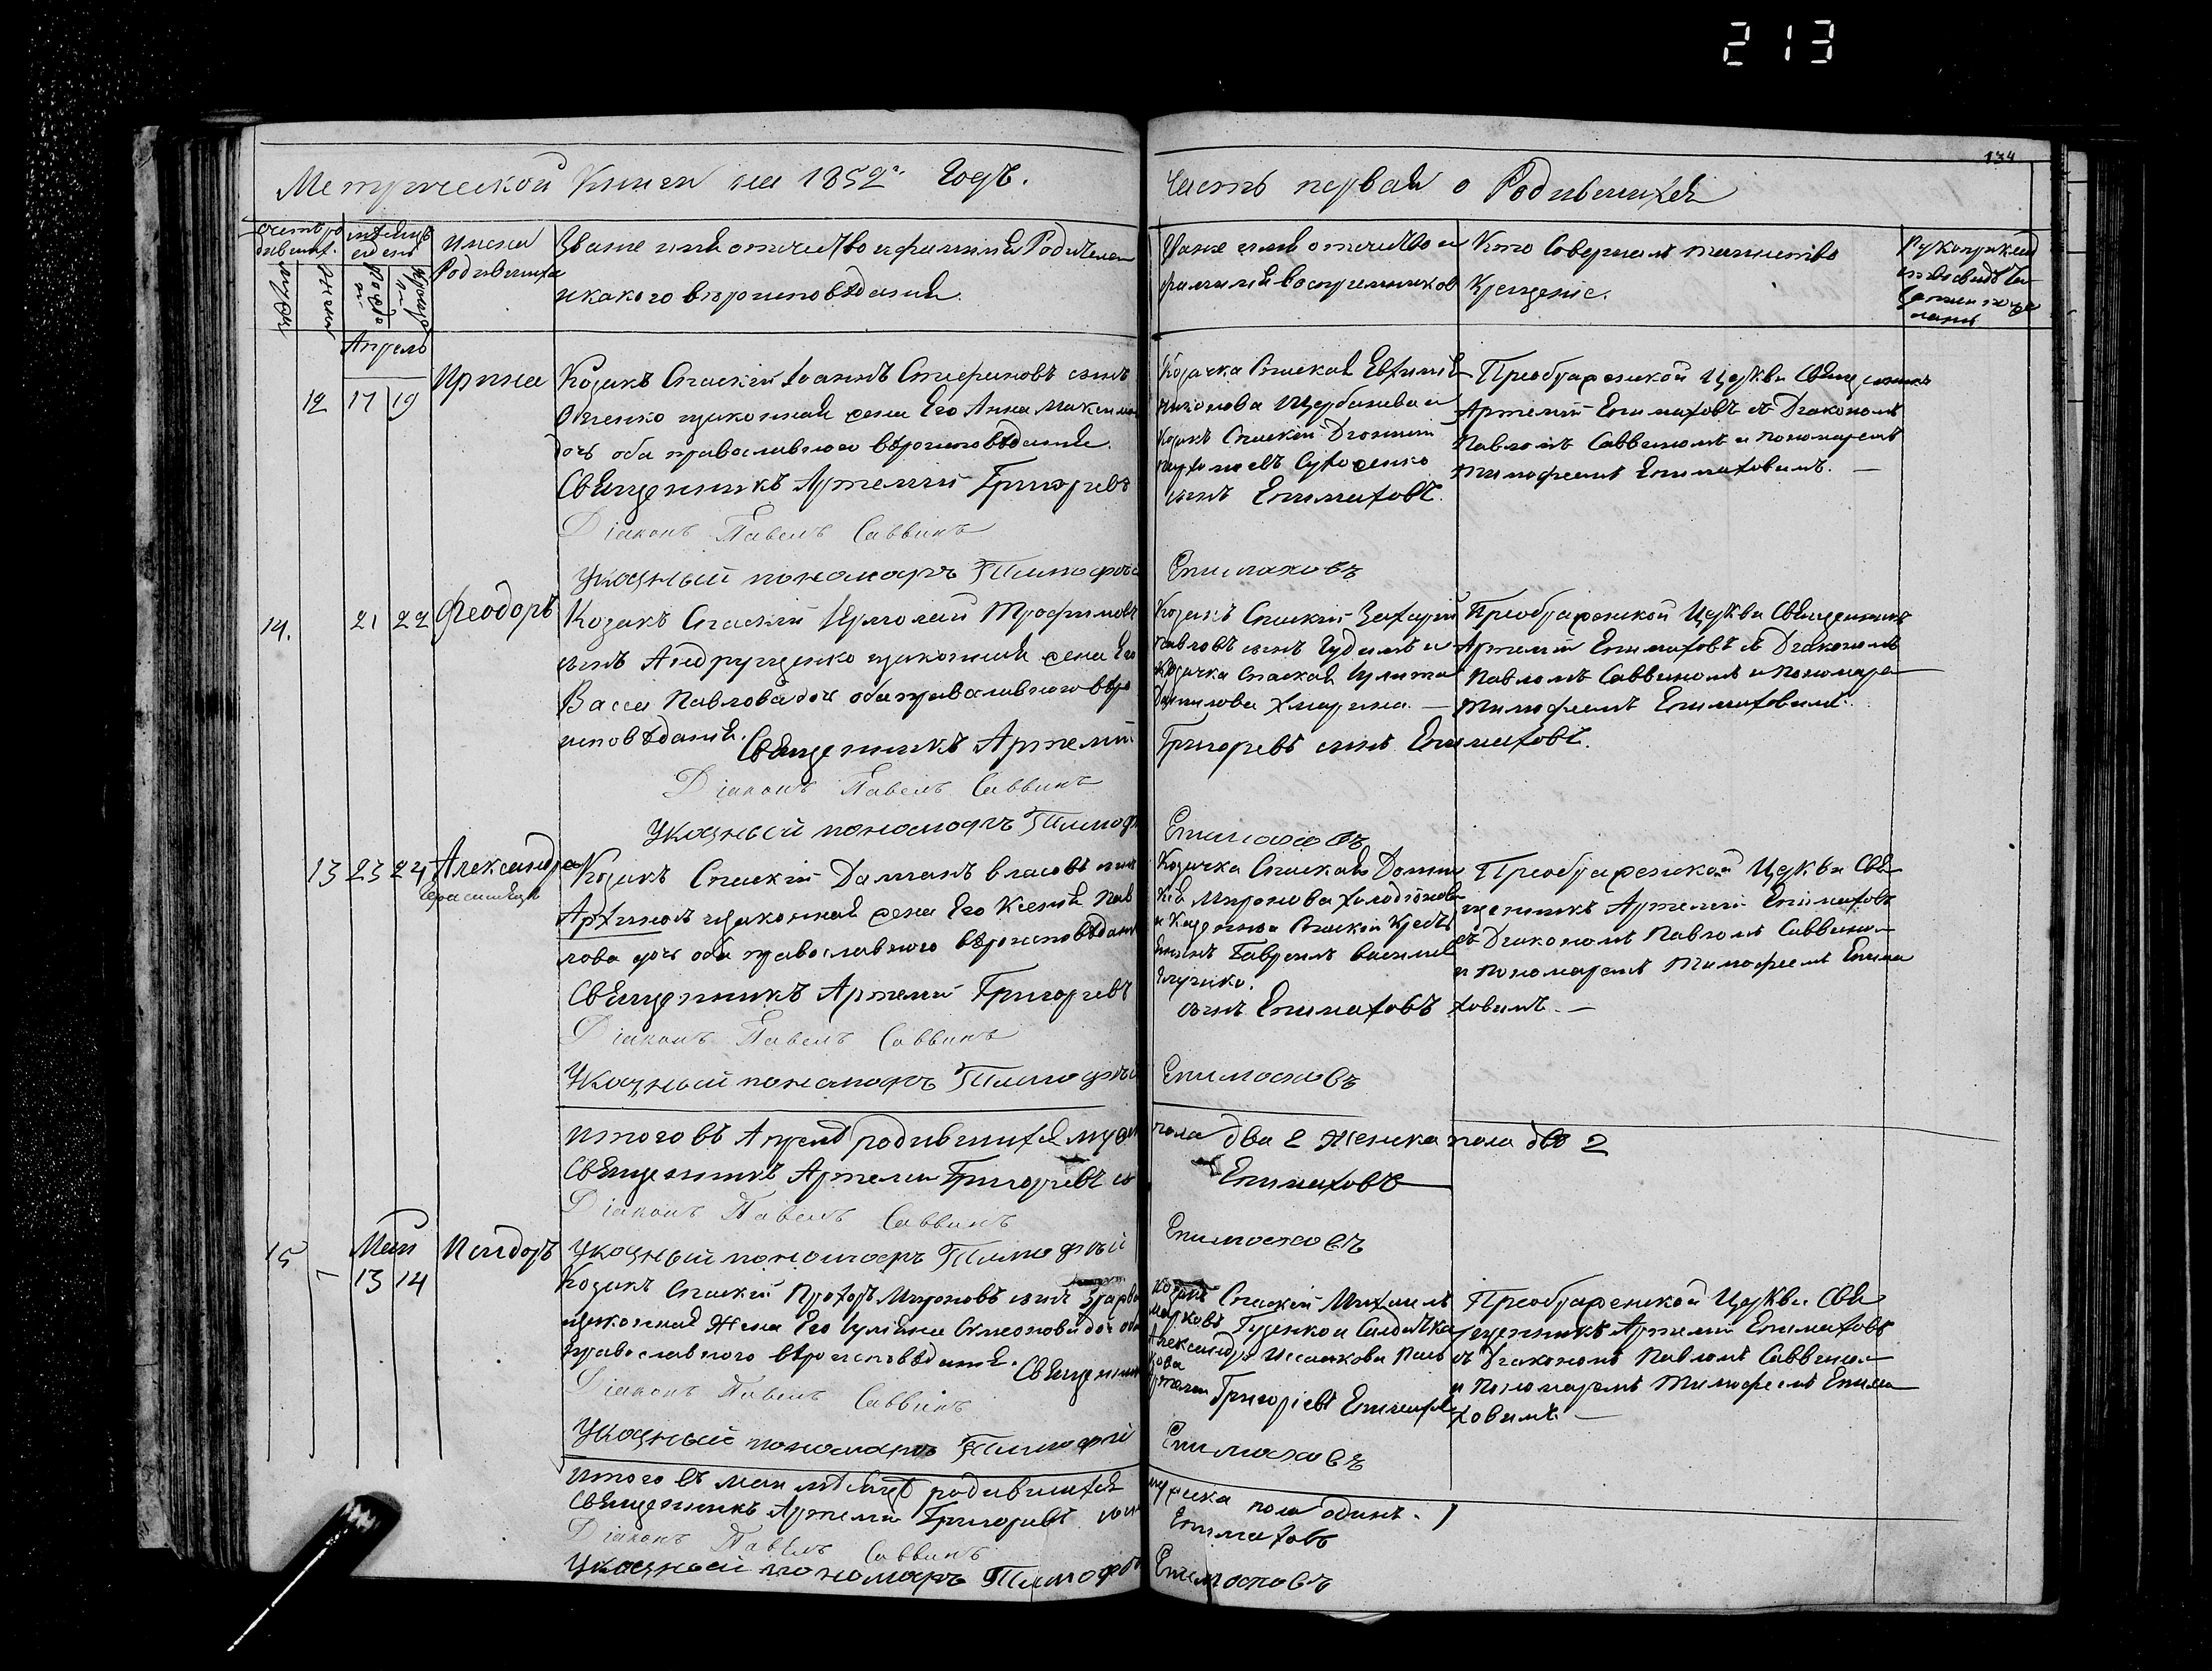 213
134
Метрической Книги на 1852й Годъ.
Часть первая о Родившихся
счетъ родившихъ.
мѣсяцъ и день
Имена Родившихъ
Званіе имя отчество и фамилія Родителей
и какого вѣроисповѣданія.
Званіе имя отчество и
фамилія воспріемниковъ
Кто Совершалъ таинство
Крещеніе.
Апрель
12 17 19 Ирина
Козакъ Спаскій Іоаннъ Стефановъ сынъ
законная жена Его Анна
дочь оба православного вѣроисповѣданія.
Священникъ Артемій Григорьевъ
Діаконъ Павелъ Саввинъ
Указный пономарь Тимофей
Козачка Спаская Евфимія
Щербинева и
Козакъ Спаскій
сынъ Епимаховъ.
Епимаховъ
Преображенской Церкви Священникъ
Артемій Епимаховъ съ Діакономъ
Павломъ Саввиномъ и пономаремъ
Тимофеемъ Епимаховимъ. —
14. 21 22 Феодоръ
Козакъ Спаскій Ермолай Трофимовъ
сынъ Андрущенко законная жена Его
Васса Павлова дочь оба православного вѣро
исповѣданія. Священникъ Артемій
Діаконъ Павелъ Саввинъ
Указный пономарь Тимофей
Козакъ Спаскій Захарій
Павловъ сынъ Гудимъ и
Козачка Спаская Іулита
Данилова —
Григорьевъ сынъ Епимаховъ.
Епимаховъ
Преображенской Церкви Священникъ
Артемій Епимаховъ съ Діакономъ
Павломъ Саввиномъ и Пономаре
Тимофеемъ Епимаховимъ.
13 23 24 Александра
Козакъ Спаскій Даміанъ Власовъ сынъ
законная жена Его Ксенія Пав
лова дочь оба православного вѣроисповѣдані
Священникъ Артемій Григорьевъ
Діаконъ Павелъ Саввинъ
Указный пономарь Тимофей
Козачка Спаская Домни
кія Миронова
и Казенной Спаской Крестья
нинъ Гавріилъ
сынъ Епимаховъ
Епимаховъ
Преображенской Церкви Свя
щенникъ Артемій Епимаховъ
съ Діакономъ Павломъ Саввином
и Пономаремъ Тимофеемъ Епима
ховимъ. —
Итого въ Апрелѣ родившихся мужеска
пола два 2 Женска пола двѣ 2
Священникъ Артемій Григорьевъ сы
Епимаховъ
Діаконъ Павелъ Саввинъ
Указный пономарь Тимофей
Епимаховъ
Маи
15 – 13 14 Исидоръ
Козакъ Спаскій Прохоръ Мироновъ сынъ
законная Жена Его Іуліана Симеонова дочь оба
православного вѣроисповѣданія. Священникъ
Діаконъ Павелъ Саввинъ
Указный пономарь Тимофей
Козакъ Спаскій Михаилъ
Марковъ Гуденко и Салдатка
Александра
Артемій Григоріевъ Епимахов
Епимаховъ
Преображенской Церкви Свя
щенникъ Артемій Епимаховъ
съ Діакономъ Павломъ Саввином
и Пономаремъ Тимофеемъ Епима
ховимъ. —
Итого въ маи мѣсяцѣ родившихся
мужеска пола одинъ. 1
Священникъ Артемій Григорьевъ сын
Епимаховъ
Діаконъ Павелъ Саввинъ
Указный пономарь Тимофей
Епимаховъ